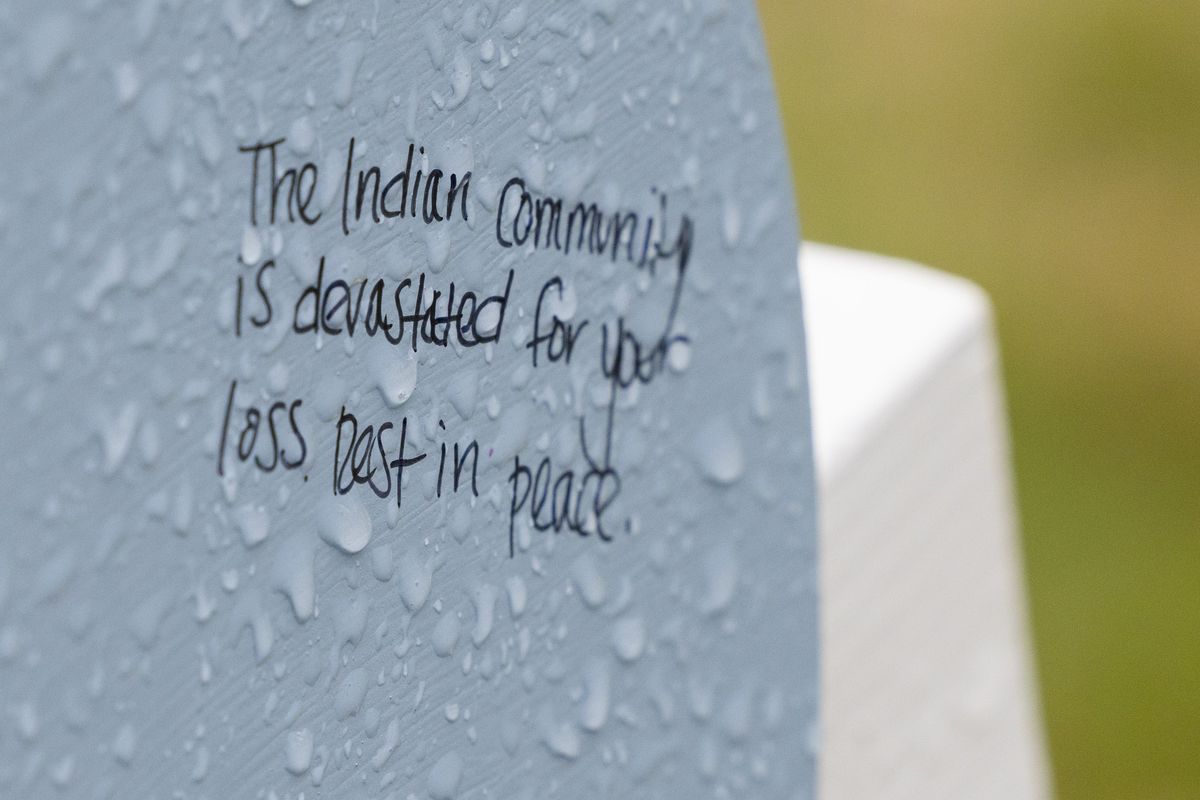 The Indian Community
is devastated for your
loss. Rest in peace.